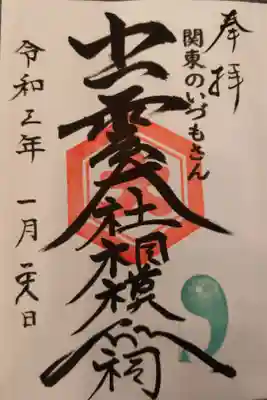 奉拝
関東のいづもさん
出雲大社相模分祠
令和三年 一月二日